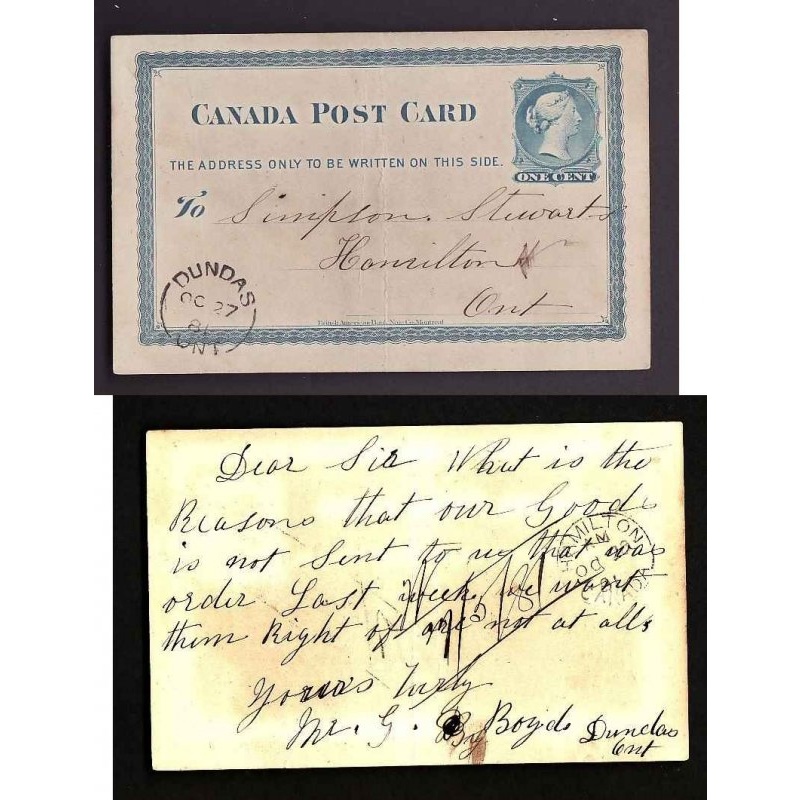 CANADA POST CARD
ONE CENT
THE ADDRESS ONLY TO BE WRITTEN ON THIS SIDE.
To Simpson. Stewarts
Hamilton
Ont
DUNDAS
OC 27
81
ONT
British American Bank Note Co. Montreal
Dear Sir What is the
Reasons that our Goods
is not Sent to us that was
order Last week, we want
them Right of are not at all
HAMILTON
CANADA
Yours Turly
Mr. G. Boyd
Dundas
Ont